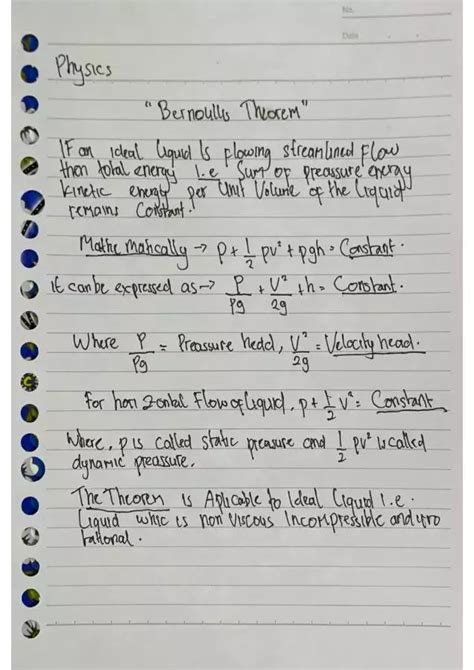 No.
Date
Physics
"Bernoullis Theorem"
IF an ideal liquid Is flowing streamlined Flow
then total energy i.e Sum of preassure energy
Kinetic energy per Unit Volume of the Liquid
remains Constant.
Mathematically → p + 1/2 ρv² + ρgh = Constant.
it can be expressed as → P/ρg + V²/2g + h = Constant.
Where P/ρg = Preassure head, V²/2g = Velocity head.
For horizontal Flow of Liquid, p + 1/2 v² = Constant
Where, p is called static preasure and 1/2 ρv² is called
dynamic preassure.
The Theorem is Aplicable to Ideal Liquid i.e.
Liquid whic is non Viscous Incompressible and irro
tational.